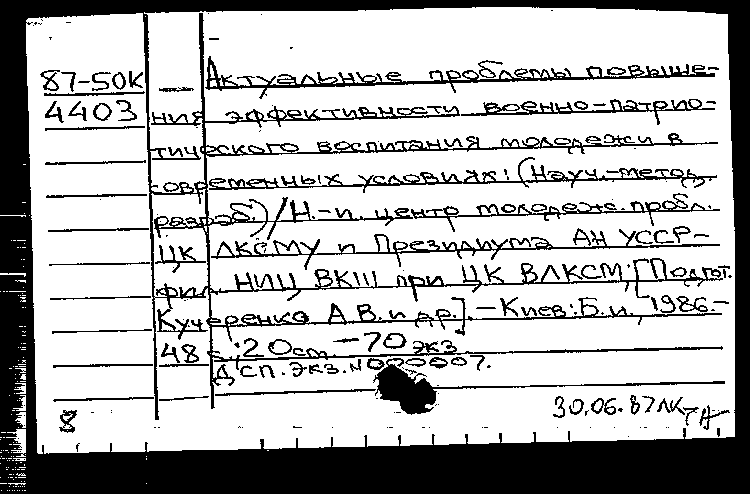 87-50К
4403
Актуальные проблемы повыше-
ния эффективности военно-патрио-
тического воспитания молодежи в
современных условиях: (Науч.-метод.
разраб.) / Н.-и. центр молодеж. пробл.
ЦК ЛКСМУ и Президиума АН УССР-
фил. НИЦ ВКШ при ЦК ВЛКСМ; [Подгот.
Кучеренко А.В. и др.]. - Киев: Б.и., 1986.-
48 с.; 20 см - 70 экз
ДСП. Экз. N000007.
8
30.06.87